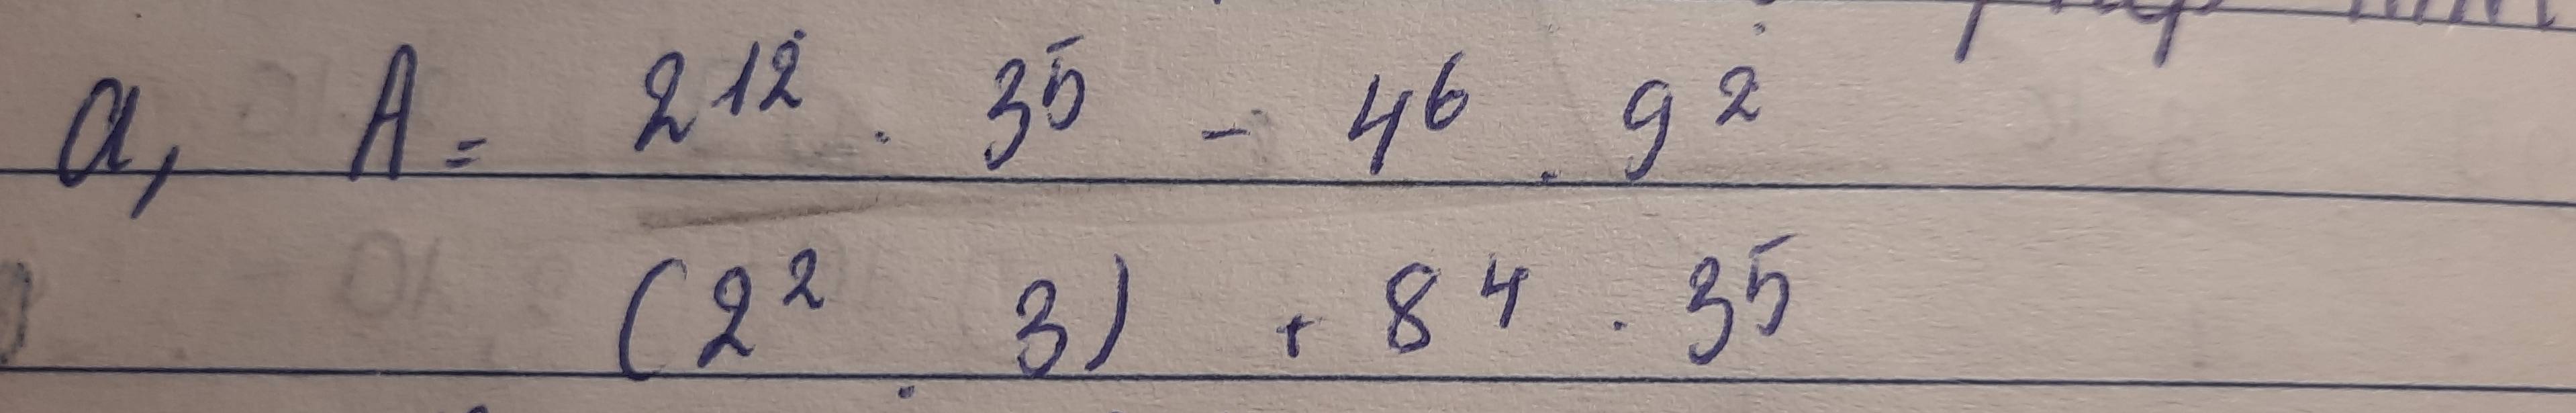 a, A = 2¹² . 3⁵ - 4⁶ . 9²
(2² . 3) + 8⁴ . 3⁵